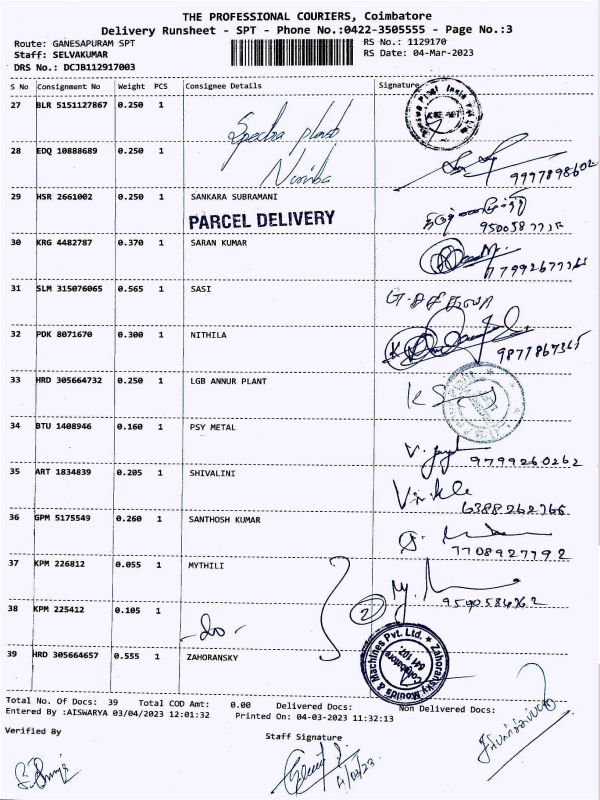 THE PROFESSIONAL COURIERS, Coimbatore
Delivery Runsheet - SPT - Phone No.:0422-3505555 - Page No.:3
Route: GANESAPURAM SPT RS No.: 1129170
Staff: SELVAKUMAR RS Date: 04-Mar-2023
DRS No.: DCJB112917003
S No Consignment No Weight PCS Consignee Details Signature
27 BLR 5151127867 0.250 1
Spectra plast
28 EDQ 10888689 0.250 1
29 HSR 2661002 0.250 1 SANKARA SUBRAMANI
PARCEL DELIVERY
30 KRG 4482787 0.370 1 SARAN KUMAR
31 SLM 315076065 0.565 1 SASI
32 PDK 8071670 0.300 1 NITHILA
9877867365
33 HRD 305664732 0.250 1 LGB ANNUR PLANT
34 BTU 1408946 0.160 1 PSY METAL
9799260262
35 ART 1834839 0.205 1 SHIVALINI
6388262766
36 GPM 5175549 0.260 1 SANTHOSH KUMAR
7708927792
37 KPM 226812 0.055 1 MYTHILI
38 KPM 225412 0.105 1
-do-
2
39 HRD 305664657 0.555 1 ZAHORANSKY
Zahoransky Moulds & Machines Pvt. Ltd.
Coimbatore
641 107.
Total No. Of Docs: 39 Total COD Amt: 0.00 Delivered Docs: Non Delivered Docs:
Entered By :AISWARYA 03/04/2023 12:01:32 Printed On: 04-03-2023 11:32:13
Verified By Staff Signature
4/03/23